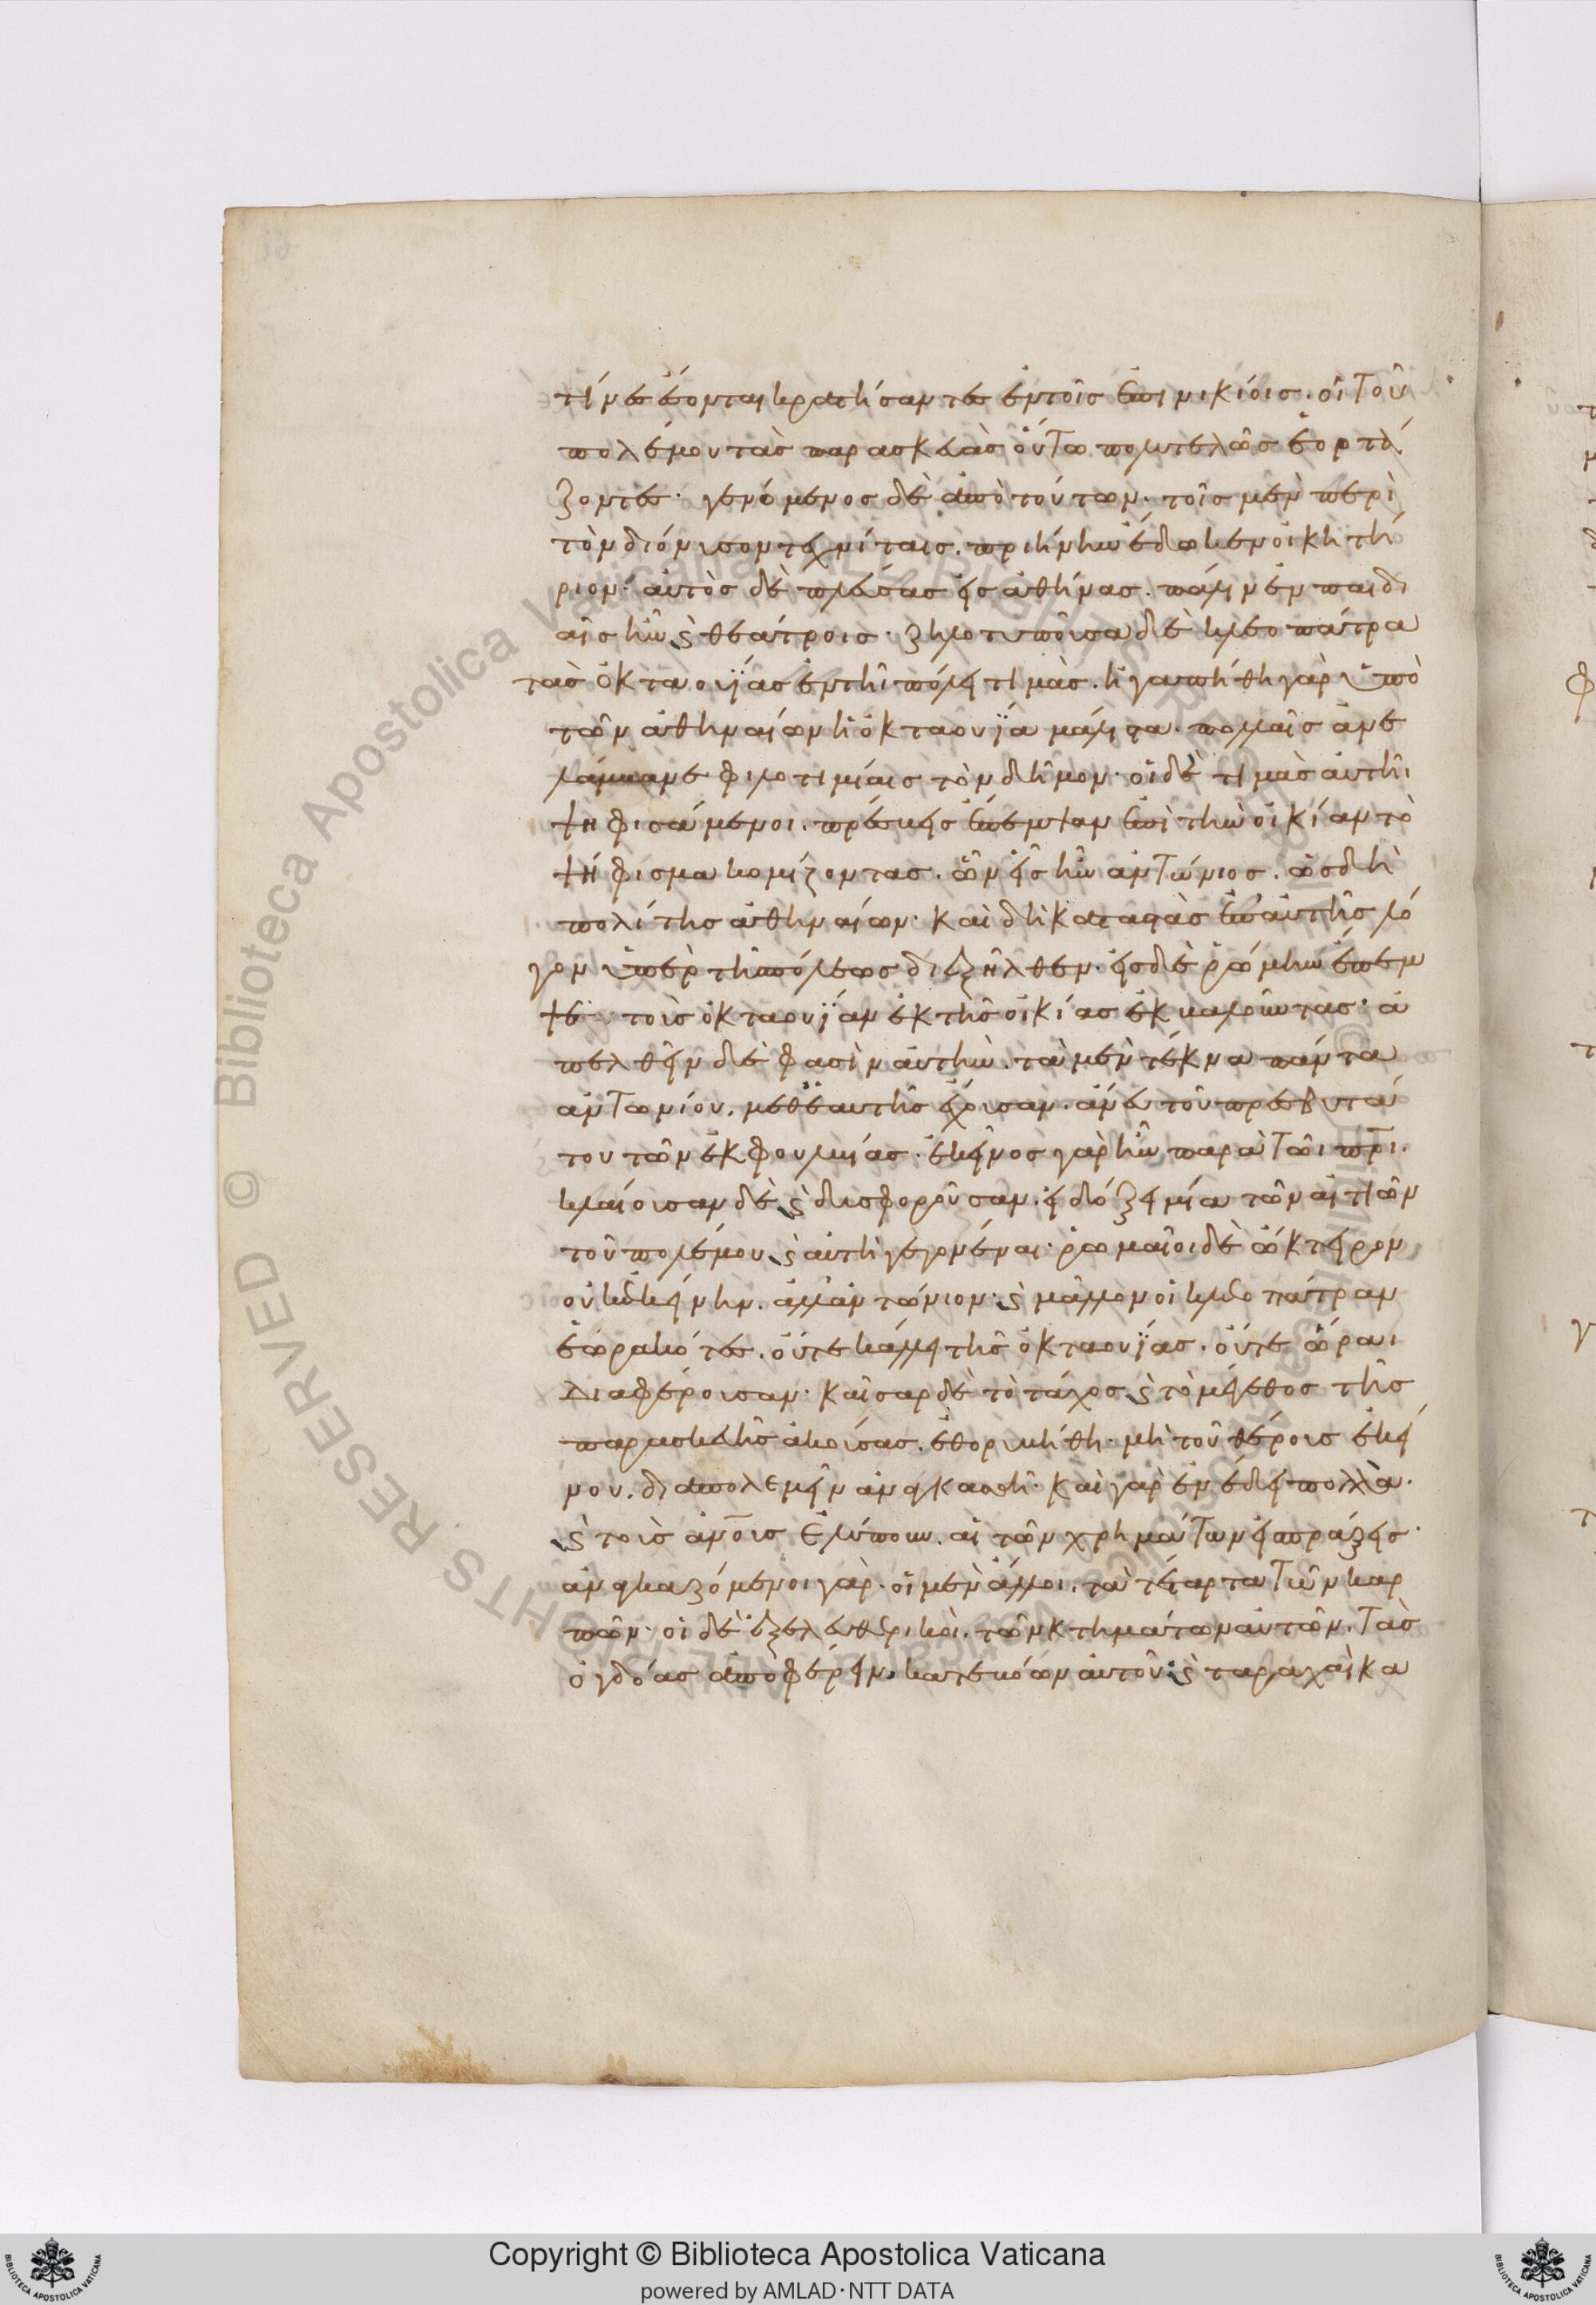 τίνες ἔσονται κρατήσαντες ἐν τοῖς ἐπινικίοις. οἱ τοῦ
πολέμου τὰς παρασκευὰς οὕτω πολυτελῶς ἑορτά
ζοντες· γενόμενος δὲ ἀπὸ τούτων· τοῖς μὲν περὶ
τὸν διόνυσον τεχνίταις. πριήνην ἔδωκεν οἰκητή
ριον· αὐτὸς δὲ πλεύσας εἰς ἀθήνας. πάλιν ἐν παιδι
αῖς ἦν ϗ θεάτροις· ζηλοτυποῦσα δὲ κλεοπάτρα
τὰς ὀκταουΐας ἐν τῆι πόλει τιμὰς. ἠγαπήθη γὰρ ὑπὸ
τῶν ἀθηναίων ἡ ὀκταουΐα μάλιστα. πολλαῖς ἀνε
λάμβανε φιλοτιμίαις τὸν δῆμον· οἱ δὲ τιμὰς αὐτῆι
ψηφισάμενοι. πρέσβεις ἔπεμψαν ἐπὶ τὴν οἰκίαν τὸ
ψήφισμα κομίζοντας. ὧν εἷς ἦν ἀντώνιος. ὡς δὴ
πολίτης ἀθηναίων· καὶ δὴ καταστὰς ἐπ' αὐτῆς λό
γον ὑπὲρ τῆς πόλεως διεξῆλθεν· εἰς δὲ ῥώμην ἔπεμ
ψε τοὺς ὀκταουΐαν ἐκ τῆς οἰκίας ἐκβαλοῦντας· ἀ
πελθεῖν δὲ φασὶν αὐτὴν. τὰ μὲν τέκνα πάντα
ἀντωνίου. μεθ' ἑαυτῆς ἔχουσαν. ἄνευ τοῦ πρεσβυτά
του τῶν ἐκ φουλβίας. ἐκεῖνος γὰρ ἦν παρὰ τῶι πρι.
κλαίουσαν δὲ ϗ δυσφοροῦσαν. εἰ δόξει μία τῶν αἰτιῶν
τοῦ πολέμου ϗ αὐτὴ γεγονέναι· ῥωμαῖοι δὲ ὤκτειρον
οὐκ ἐκείνην. ἀλλ' ἀντώνιον· ϗ μᾶλλον οἱ κλεοπάτραν
ἑωρακότες. οὔτε κάλλει τῆς ὀκταουΐας. οὔτε ὥραι
διαφέρουσαν· καῖσαρ δὲ τὸ τάχος ϗ τὸ μέγεθος τῆς
παρασκευῆς ἀκούσας. ἐθορυβήθη· μὴ τοῦ θέρους ἐκεί
νου. διαπολεμεῖν ἀναγκασθῆι· καὶ γὰρ ἐνέδει πολλὰ.
ϗ τοὺς ἀνους ἐλύπουν. αἱ τῶν χρημάτων εἰσπράξεις·
ἀναγκαζόμενοι γὰρ. οἱ μὲν ἄλλοι. τὰ τέταρτα τῶν καρ
πῶν· οἱ δὲ ἐξελευθερικοὶ. τῶν κτημάτων αὐτῶν. τὰς
ὀγδόας ἀποφέρειν. κατεβόων αὐτοῦ· ϗ ταραχαὶ κα